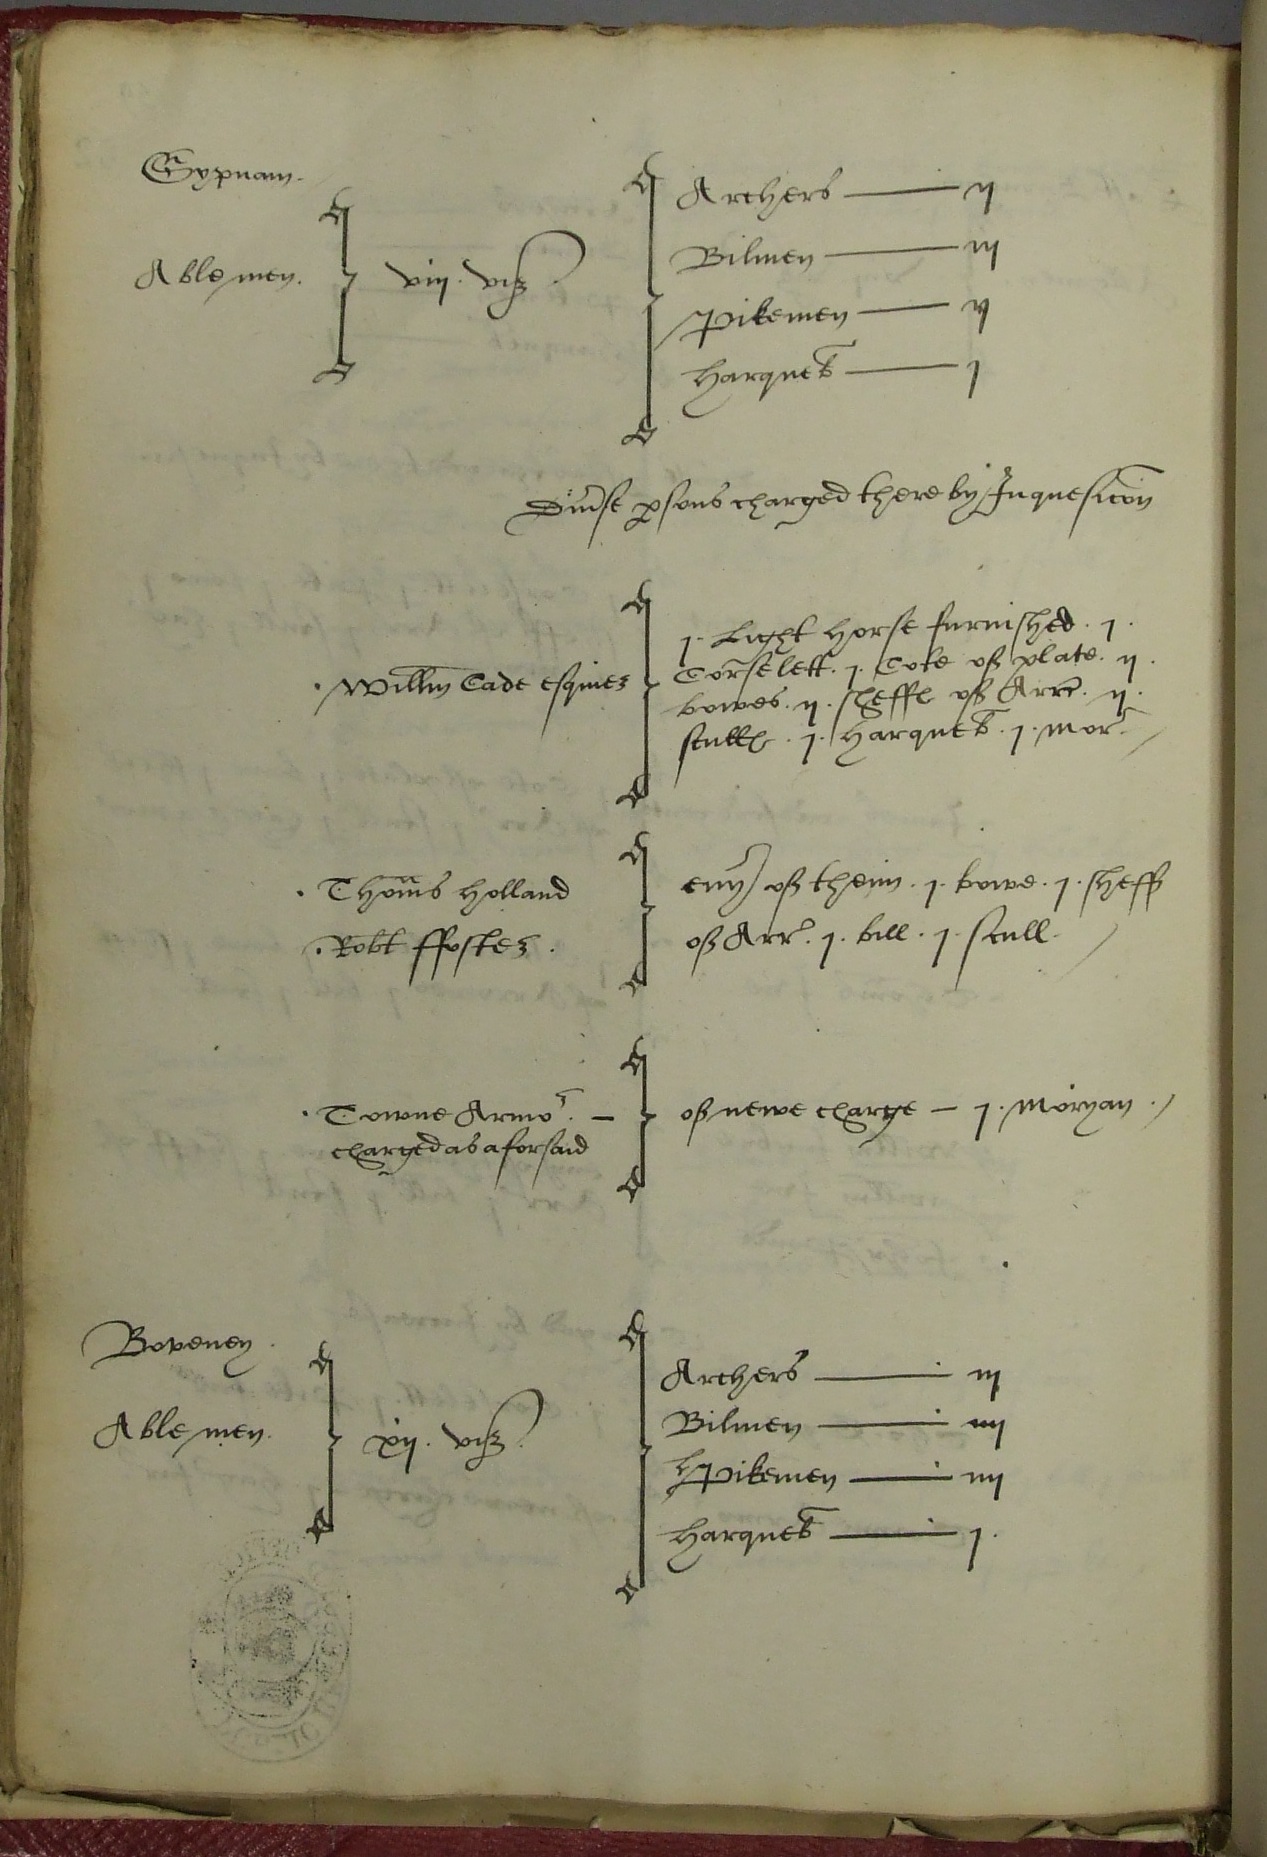 Gypnam.
Able men. viij. vizt.
Archers — ij
Bilmen — iij
Pikemen — ij
Harqueb — j
Diu'se p'sons charged there by Inquesicon
. Willm Cade esquier
j. Light horse furnished. j.
Corselett. j. Cote of plate. ij.
bowes. ij. sheffe of Arr'. ij.
sculle. j. Harqueb. j. mor'.
. Thoms Holland
. Robt ffoster.
eu'y of theim. j. bowe. j. sheff
of Arr'. j. bill. j. scull.
. Towne Armor. —
charged as aforsaid
of newe charge — j. Moryan.
Boveney.
Able men. xij. vizt.
Archers — iij
Bilmen — iiij
Pikemen — iiij
Harqueb — j.